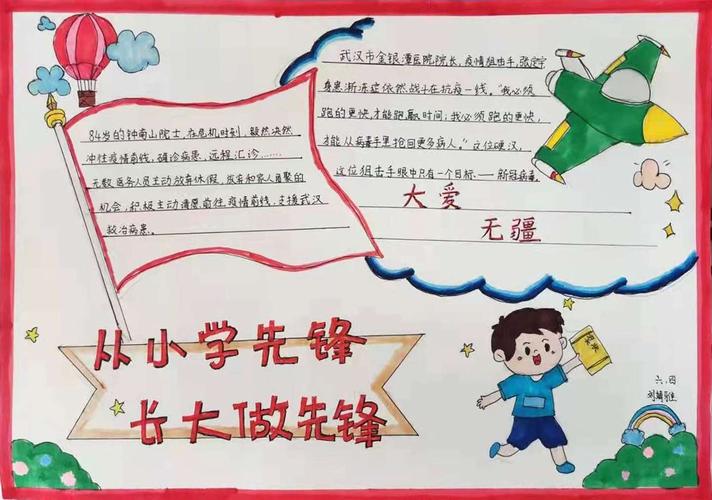 武汉市金银潭医院院长,疫情狙击手,张定宇
身患渐冻症依然战斗在抗疫一线,“我必须
跑的更快,才能跑赢时间;我必须跑的更快,
才能从病毒手里抢回更多病人。”这位硬汉,
这位狙击手眼中只有一个目标——新冠病毒。
大爱
无疆
84岁的钟南山院士,在危机时刻,毅然决然
冲往疫情前线,确诊病患,远程汇诊……
无数医务人员主动放弃休假,放弃和家人团聚的
机会,积极主动请愿前往疫情前线,支援武汉
救治病患。
从小学先锋
长大做先锋
六.四